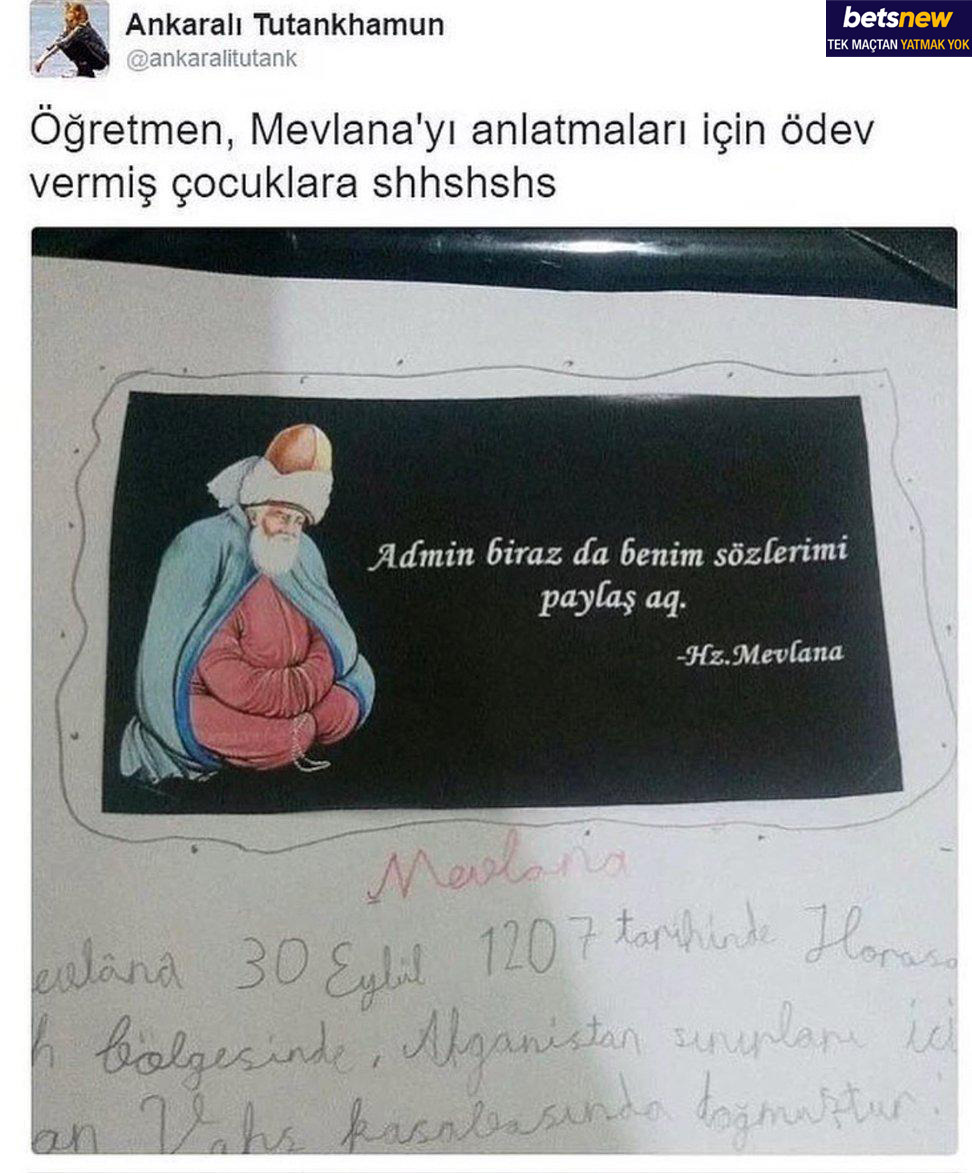 Ankaralı Tutankhamun
@ankaralitutank
betsnew
TEK MAÇTAN YATMAK YOK
Öğretmen, Mevlana'yı anlatmaları için ödev
vermiş çocuklara shhshshs
Admin biraz da benim sözlerimi
paylaş aq.
-Hz.Mevlana
Mevlana
evlânâ 30 Eylül 1207 tarihinde Horasa
h bölgesinde, Afganistan sınırları içi
an Vahş kasabasında doğmuştur.